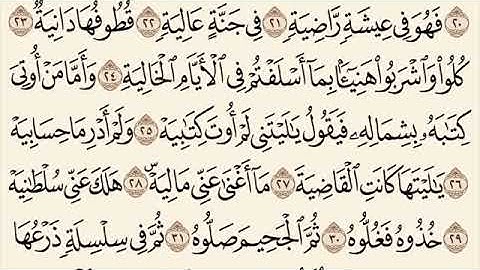 ٢٠ فَهُوَ فِي عِيشَةٍ رَّاضِيَةٍ ٢١ فِي جَنَّةٍ عَالِيَةٍ ٢٢ قُطُوفُهَا دَانِيَةٌ ٢٣
كُلُوا۟ وَٱشْرَبُوا۟ هَنِيٓـًٔۢا بِمَآ أَسْلَفْتُمْ فِي ٱلْأَيَّامِ ٱلْخَالِيَةِ ٢٤ وَأَمَّا مَنْ أُوتِيَ
كِتَٰبَهُۥ بِشِمَالِهِۦ فَيَقُولُ يَٰلَيْتَنِي لَمْ أُوتَ كِتَٰبِيَهْ ٢٥ وَلَمْ أَدْرِ مَا حِسَابِيَهْ
٢٦ يَٰلَيْتَهَا كَانَتِ ٱلْقَاضِيَةَ ٢٧ مَآ أَغْنَىٰ عَنِّي مَالِيَهْۜ ٢٨ هَلَكَ عَنِّي سُلْطَٰنِيَهْ
٢٩ خُذُوهُ فَغُلُّوهُ ٣٠ ثُمَّ ٱلْجَحِيمَ صَلُّوهُ ٣١ ثُمَّ فِي سِلْسِلَةٍ ذَرْعُهَا